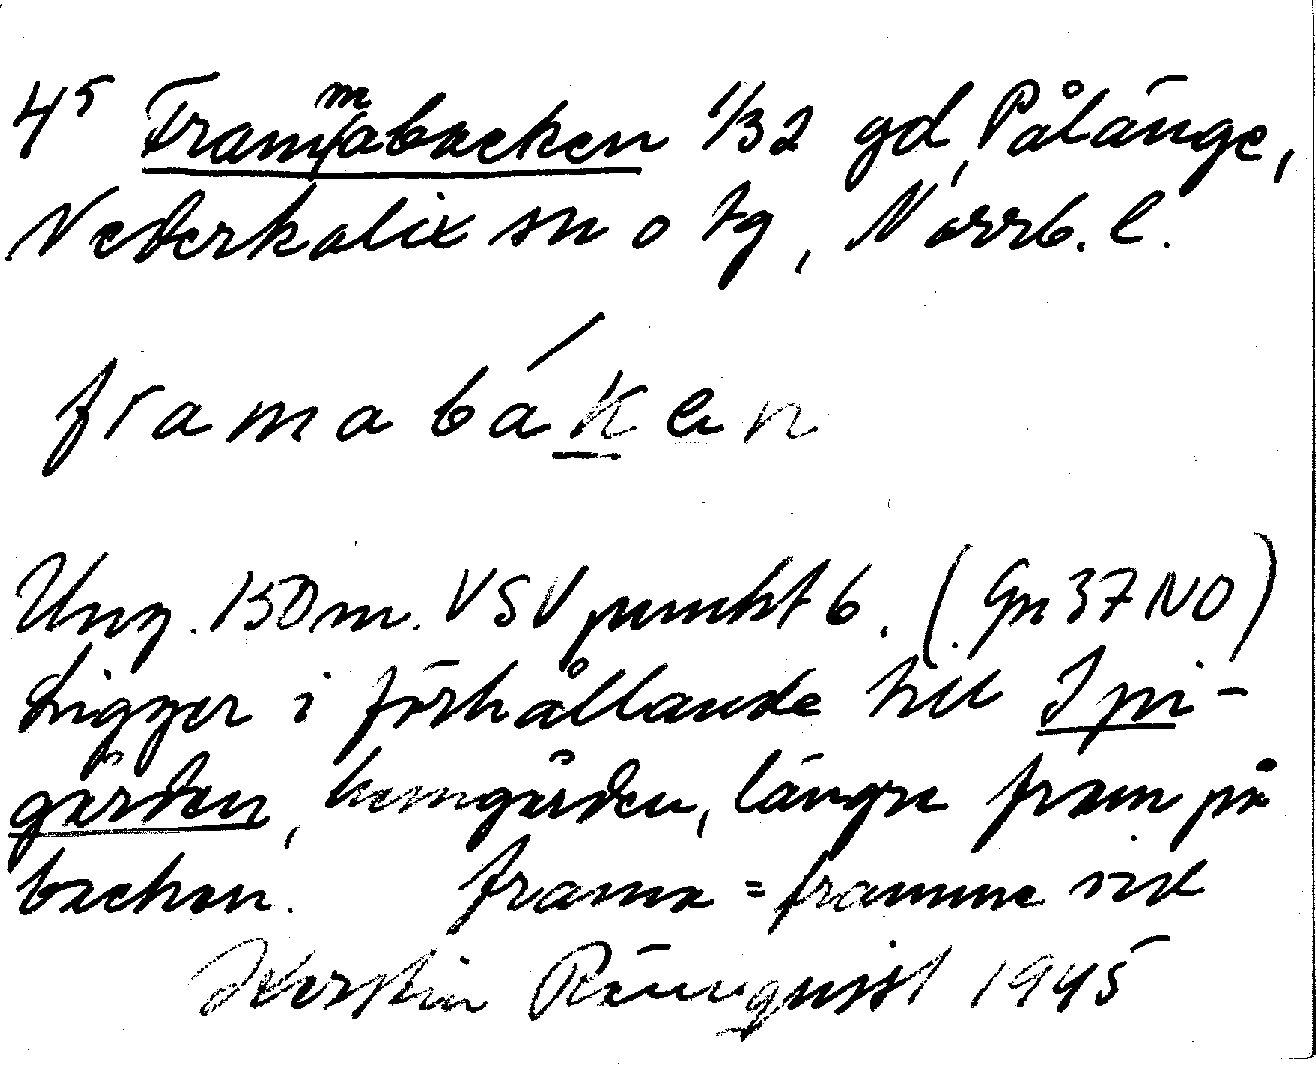 4⁵ Frammabacken 1/32 gd, Pålänge,
Nederkalix sn o tg, Norrb. l.
framabáken
Ung. 150 m. VSV punkt 6. (Gn 37 NO)
Ligger i förhållande till Ipi-
gården, hemgården, längre fram på
backen. frama = framme vid
Kerstin Rönnquist 1945